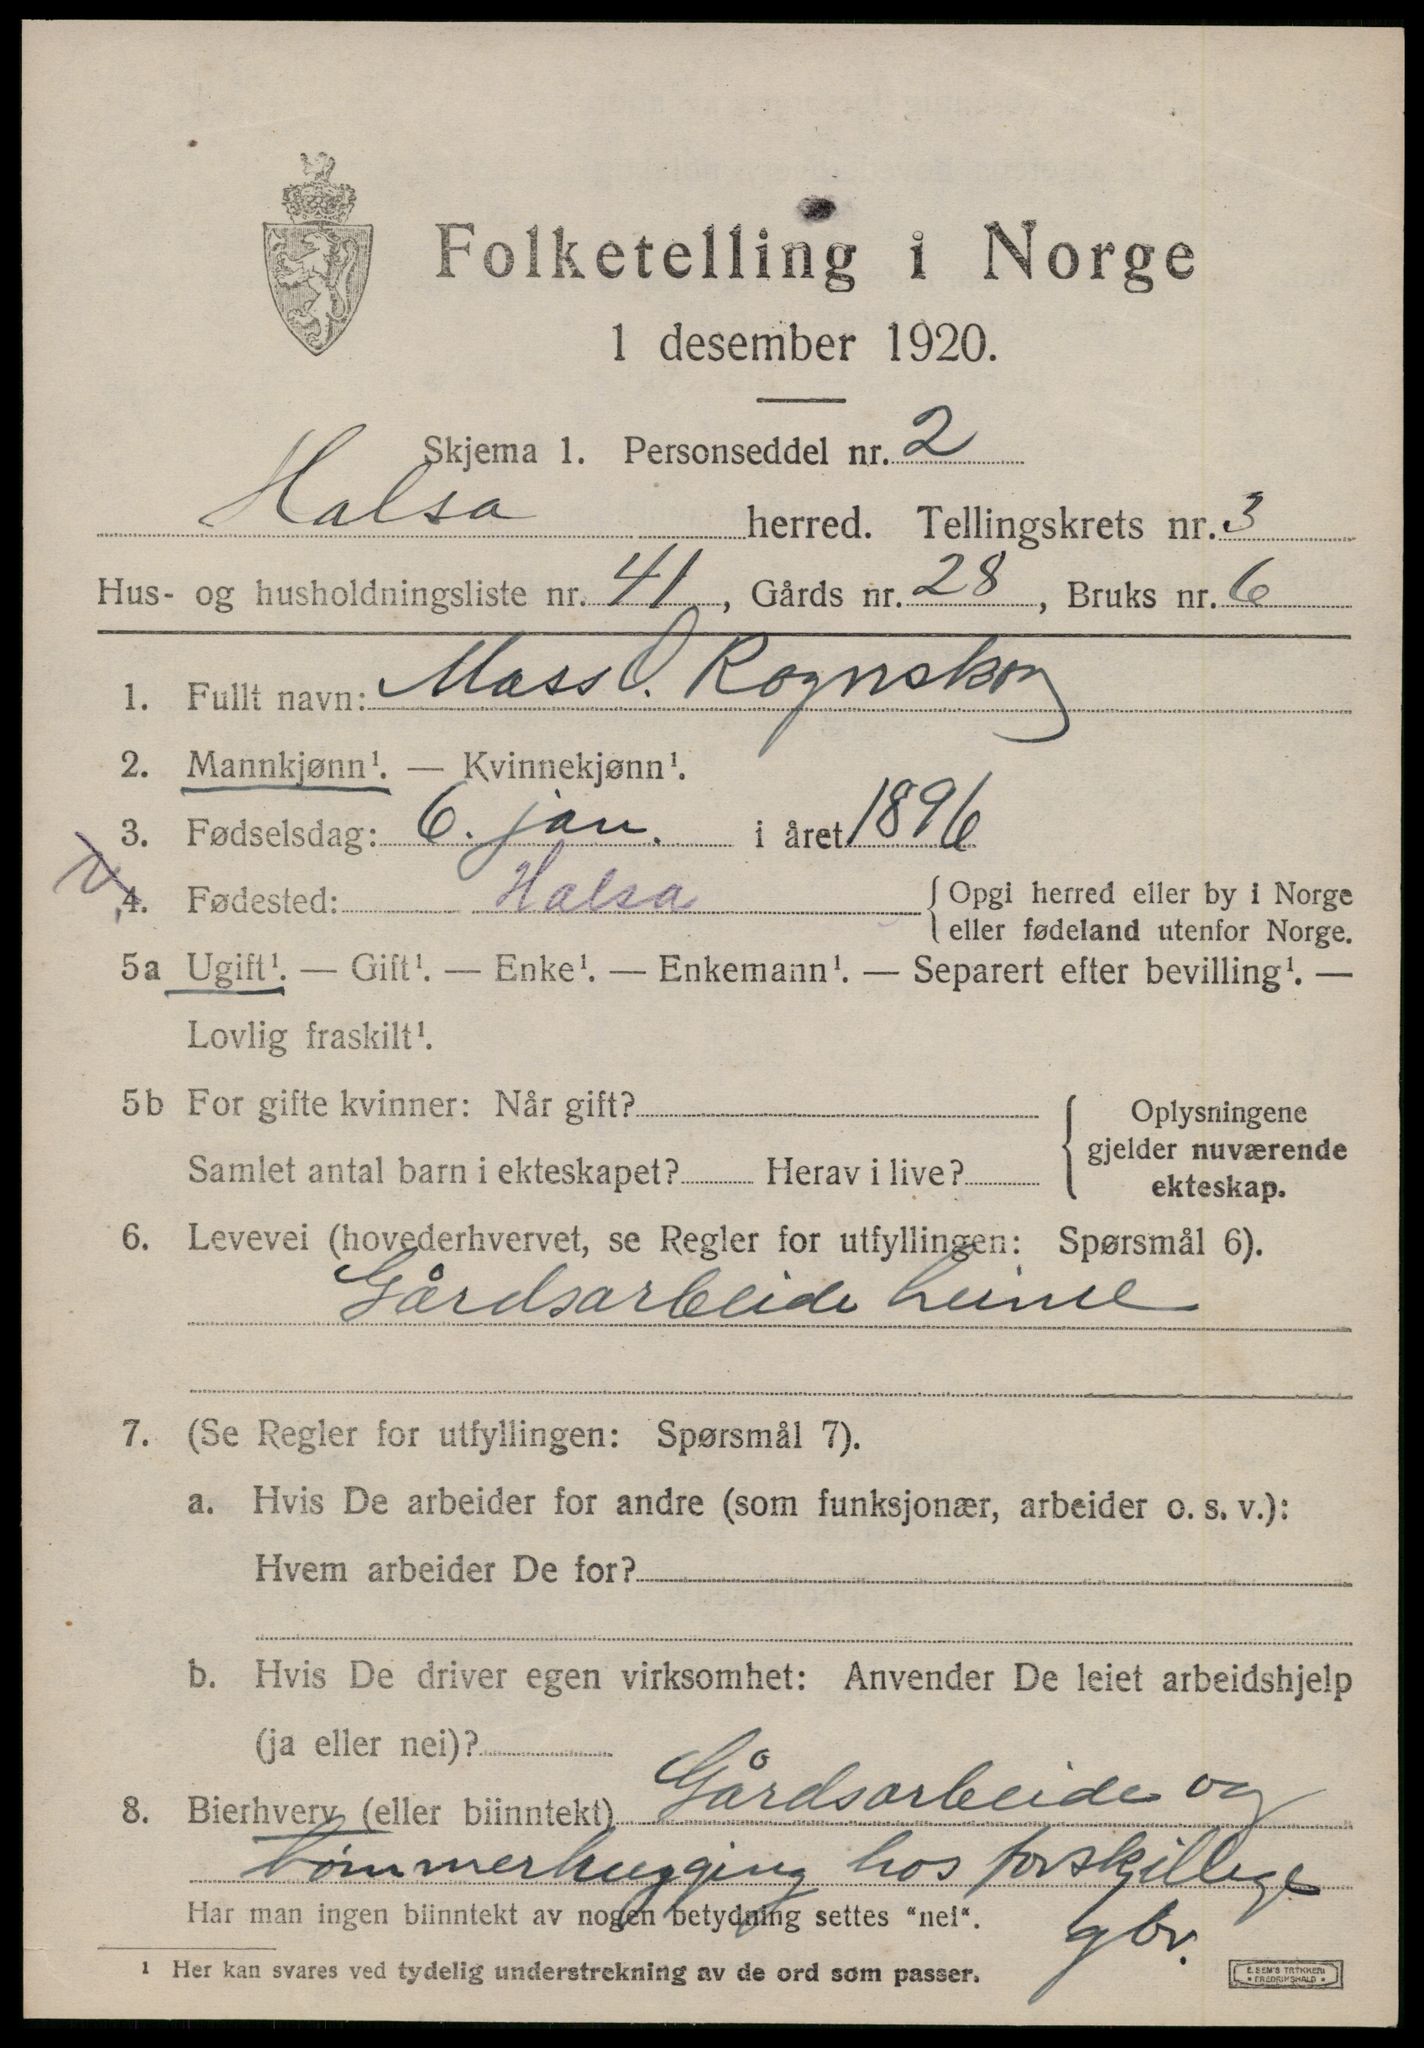 Folketelling i Norge
1 desember 1920.
Skjema 1. Personseddel nr. 2
Halsa herred. Tellingskrets nr. 3
Hus- og husholdningsliste nr. 41, Gårds nr. 28, Bruks nr. 6
1. Fullt navn: Mass O. Rognskog
2. Mannkjønn¹. — Kvinnekjønn¹.
3. Fødselsdag: 6. jan. i året 1896
4. Fødested: Halsa { Opgi herred eller by i Norge
eller fødeland utenfor Norge.
5a Ugift¹. — Gift¹. — Enke¹. — Enkemann¹. — Separert efter bevilling¹. —
Lovlig fraskilt¹.
5b For gifte kvinner: Når gift?
Samlet antal barn i ekteskapet? Herav i live?
Oplysningene
gjelder nuværende
ekteskap.
6. Levevei (hovederhvervet, se Regler for utfyllingen: Spørsmål 6).
Gårdsarbeide heime
7. (Se Regler for utfyllingen: Spørsmål 7).
a. Hvis De arbeider for andre (som funksjonær, arbeider o. s. v.):
Hvem arbeider De for?
b. Hvis De driver egen virksomhet: Anvender De leiet arbeidshjelp
(ja eller nei)?
8. Bierhverv (eller biinntekt) Gårdsarbeide og
tømmerhugging hos forskillige
gbr.
Har man ingen biinntekt av nogen betydning settes "nei".
¹ Her kan svares ved tydelig understrekning av de ord som passer.
E. SEM'S TRYKKERI
FREDRIKSHALD